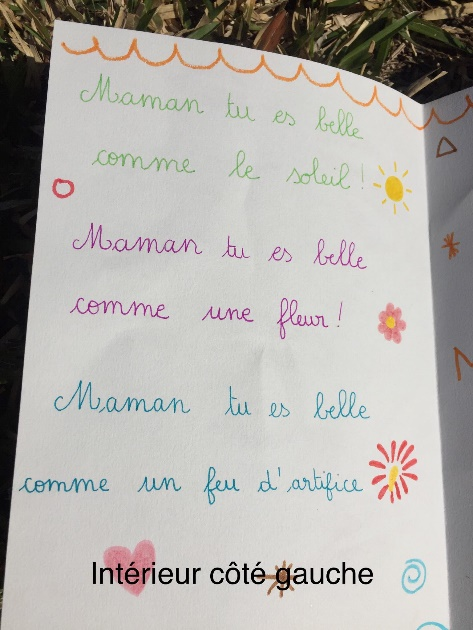 Maman tu es belle
comme le soleil !
Maman tu es belle
comme une fleur !
Maman tu es belle
comme un feu d'artifice
Intérieur côté gauche